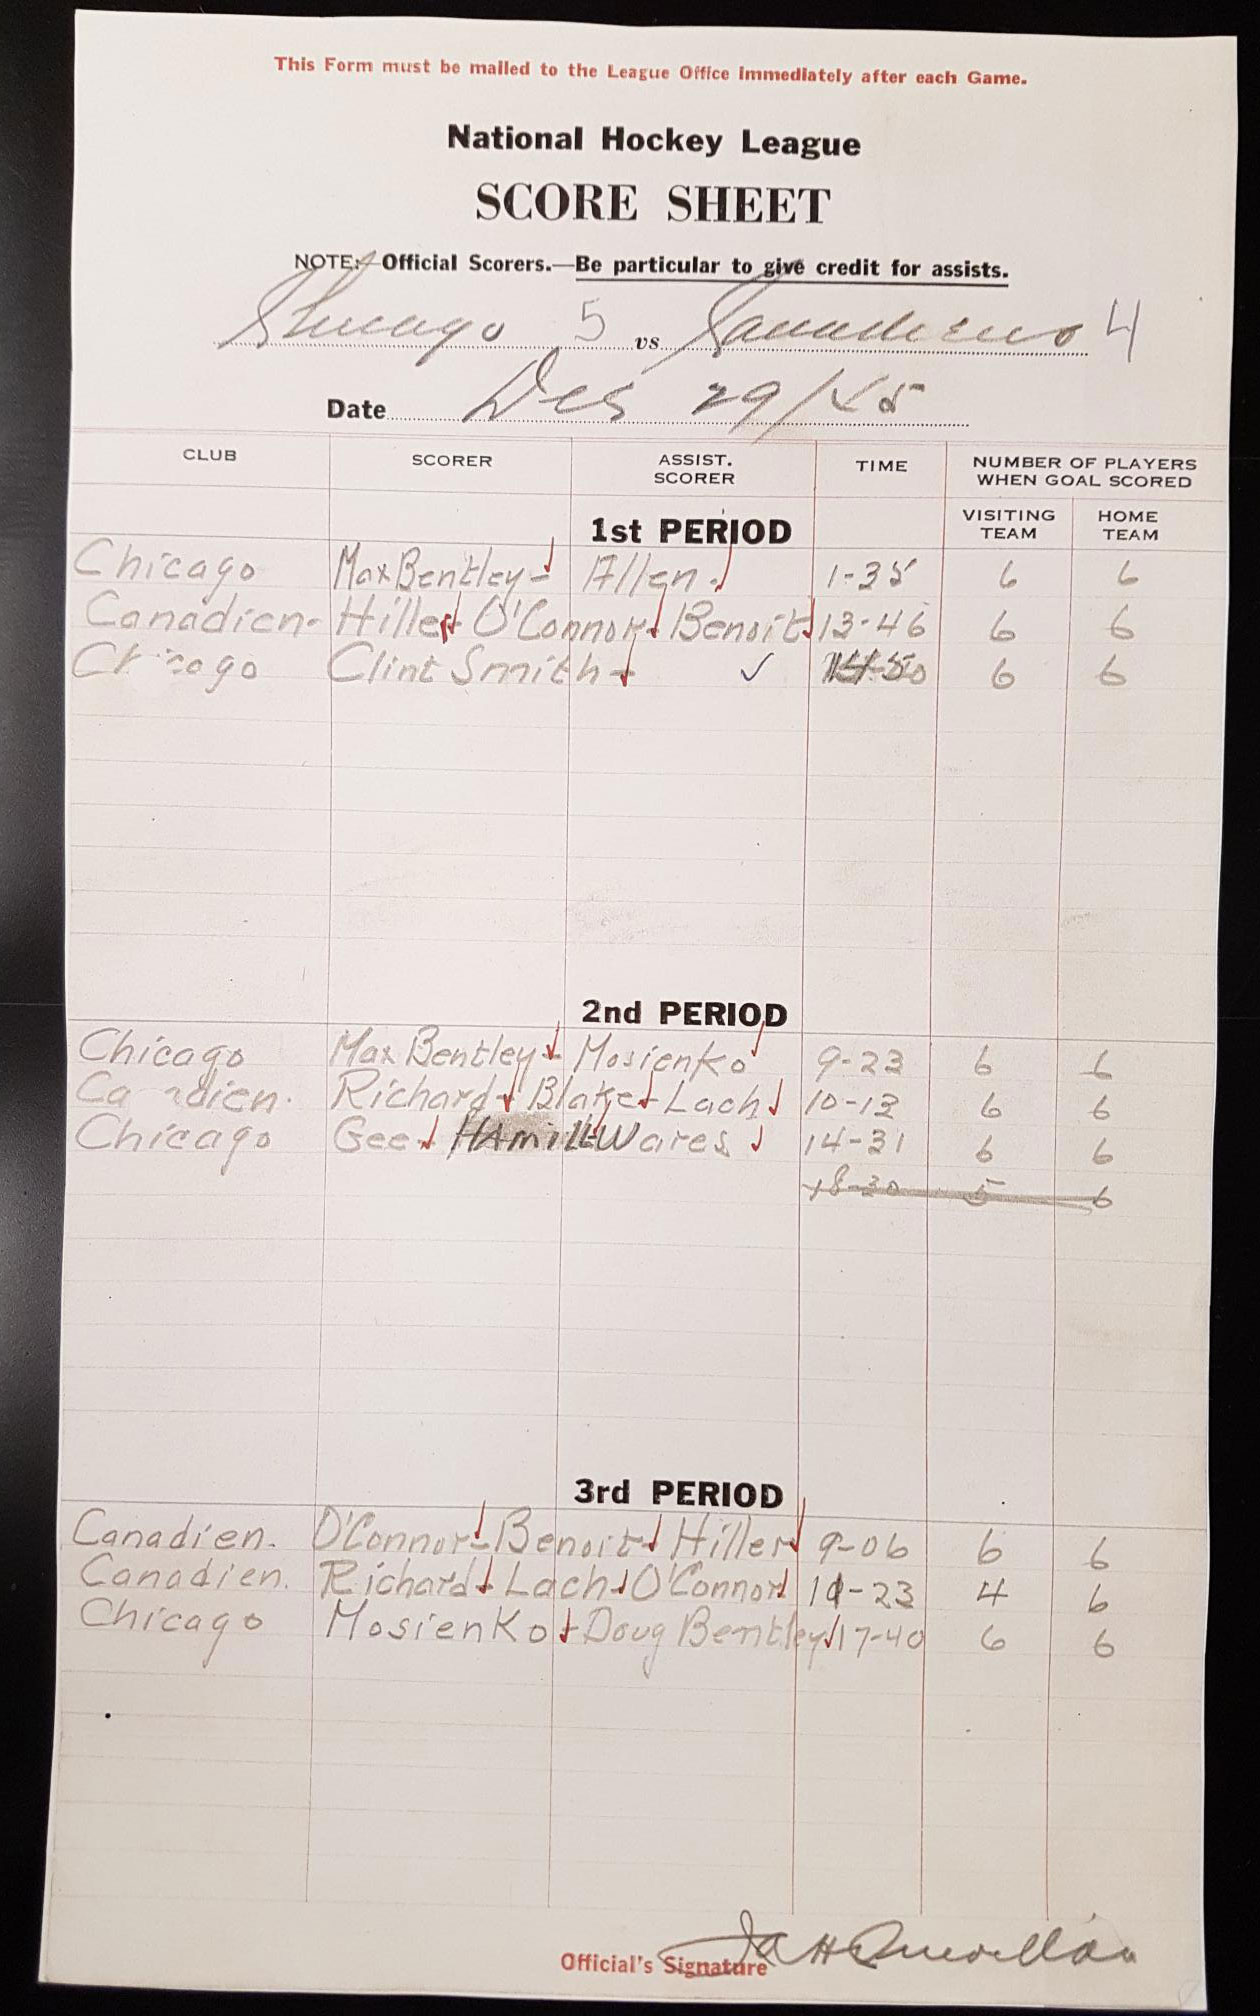 This Form must be mailed to the League Office immediately after each Game.
National Hockey League
SCORE SHEET
NOTE:—Official Scorers.—Be particular to give credit for assists.
Chicago 5 vs Canadiens 4
Date Dec 29/45
CLUB SCORER ASSIST. SCORER TIME NUMBER OF PLAYERS WHEN GOAL SCORED
VISITING TEAM HOME TEAM
1st PERIOD
Chicago Max Bentley Allen 1-35 6 6
Canadien- Hiller O'Connor Benoit 13-46 6 6
Chicago Clint Smith ✓ 6 6
2nd PERIOD
Chicago Max Bentley Mosienko 9-23 6 6
Canadien. Richard Blake Lach 10-12 6 6
Chicago Gee HAmill Wares 14-31 6 6
18-30 5 6
3rd PERIOD
Canadien. O'Connor Benoit Hiller 9-06 6 6
Canadien. Richard Lach O'Connor 4 6
Chicago Mosienko Doug Bentley 17-40 6 6
Official's Signature